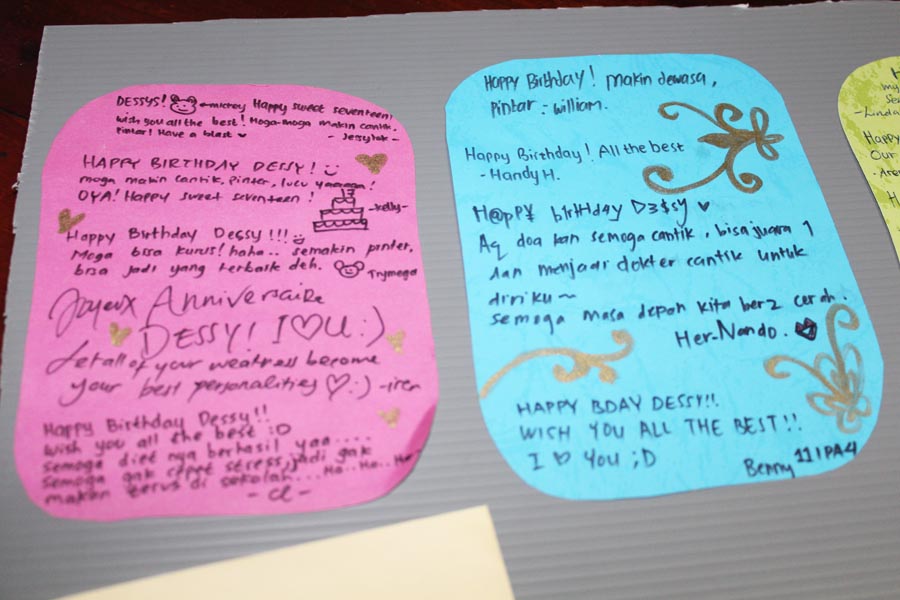 DESSYS! ←mickey Happy sweet seventeen!
wish you all the best! Moga-moga makin cantik,
pintar! Have a blast ♥
- Jessytok -
HAPPY BIRTHDAY DESSY!
moga makin cantik, pinter, lucu yaaaaa!
OYA! Happy sweet seventeen!
17
-kelly-
Happy Birthday Dessy!!!
Moga bisa kurus! haha.. semakin pinter,
bisa jadi yang terbaik deh.
Trymega
Joyeux Anniversaire
DESSY! I♡U:)
Let all of your weatness become
your best personalities ♡:) -iren
Happy Birthday Dessy!!
wish you all the best :D
semoga diet nya berhasil yaa....
semoga gak cepet stress, jadi gak
makan terus di sekolah... Ha.. Ha.. He..
- cl -
Happy Birthday! makin dewasa,
pintar : william.
Happy Birthday! All the best
- Handy H.
H@pp¥ b1rtHd4y D3$sy ♥
Aq doa kan semoga cantik, bisa juara 1
dan menjadi dokter cantik untuk
diriku~
semoga masa depan kita ber2 cerah.
Her-Nando.
HAPPY BDAY DESSY!!
WISH YOU ALL THE BEST!!
I ♡ YOU ;D
Benny 11 IPA 4
H
my
Se
-Linda
Happy
Our
-Aren
H